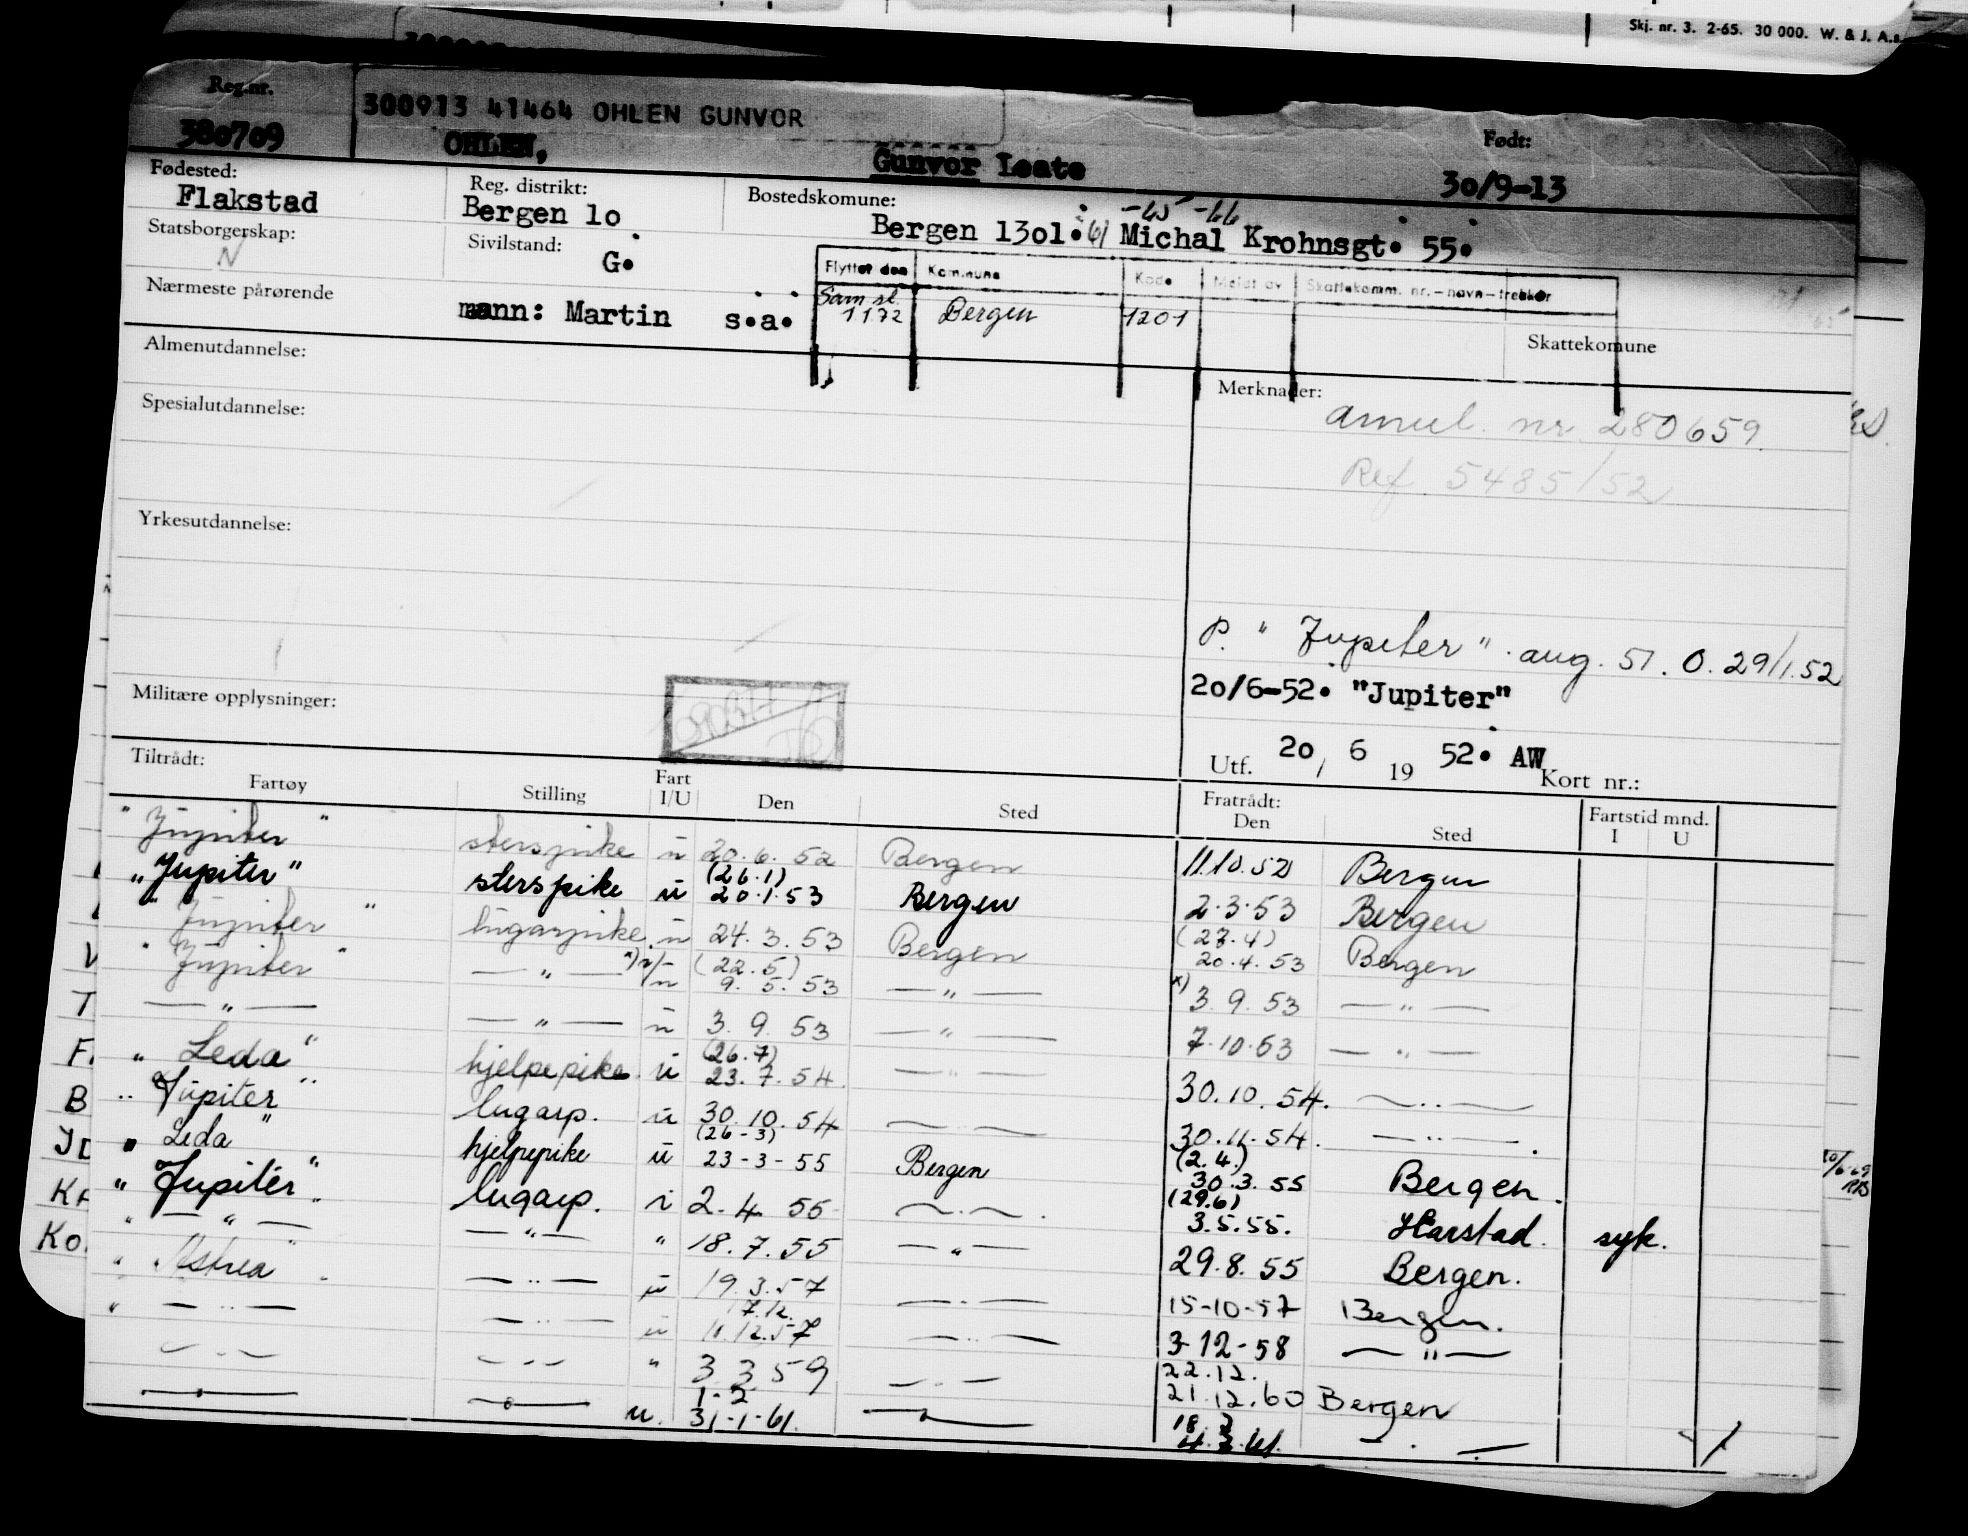 Skj. nr. 3. 2-65. 30 000. W. & J. A.s.
Reg.nr. 380709
300913 41464 OHLEN GUNVOR
OHLEN, Gunvor Leate
Født: 30/9-13
Fødested: Flakstad
Reg. distrikt: Bergen 1o
Bostedskomune: -65 -66
Bergen 13o1. 61 Michal Krohnsgt. 55.
Statsborgerskap: N
Sivilstand: G.
Flyttet den Kommune Kode Meldt av Skattekomm. nr.-navn-trekkår
Sam st. 1172 Bergen 1201
Nærmeste pårørende mann: Martin s.a.
Skattekomune
Almenutdannelse:
Merknader:
annul. nr 280659
Spesialutdannelse:
Ref 5485/52
Yrkesutdannelse:
P. "Jupiter". aug. 51. O. 29/1.52
20/6-52. "Jupiter"
Militære opplysninger:
Utf. 20/6 19 52. AW Kort nr.:
Tiltrådt:
Fartøy Stilling Fart I/U Den Sted Fratrådt: Den Sted Fartstid mnd. I U
"Jupiter" sterspike u 20.6.52 Bergen 11.10.52 Bergen
"Jupiter" sterspike u (26.1) 20.1.53 Bergen 2.3.53 Bergen
"Jupiter" lugarpike u 24.3.53 Bergen (27.4) 20.4.53 Bergen
"Jupiter" — " — x) i/u (22.5) 9.5.53 — " — x) 3.9.53 — " —
— " — — " — u 3.9.53 — " — 7.10.53 — " —
"Leda" hjelpepike u (26.7) 23.7.54 — " — 30.10.54. — " —
"Jupiter" lugarp. u 30.10.54 — " — 30.11.54. — " —
"Leda" hjelpepike u (26-3) 23-3-55 Bergen (2.4.) 30.3.55 Bergen.
"Jupiter" lugarp. i 2.4.55 — " — (29.6) 3.5.55. Harstad. syk.
" — " — — " — " 18.7.55 — " — 29.8.55 Bergen.
"Astrea" — " — u 19.3.57 — " — 15-10-57 Bergen.
" — " — — " — u 17.12. 11.12.57 — " — 3-12-58 — " —
— " — — " — " 3.3.59 — " — 22.12. 21.12.60 Bergen
— " — — " — u. 1-2 31-1-61. — " — 18.3 4.3.61. — " —